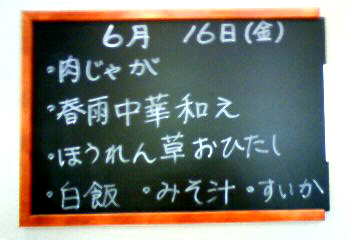 6月 16日(金)
・肉じゃが
・春雨中華和え
・ほうれん草おひたし
・白飯 ・みそ汁 ・すいか